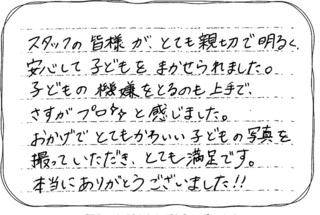 スタッフの皆様が、とても親切で明るく、
安心して子どもをまかせられました。
子どもの機嫌をとるのも上手で、
さすがプロ!!と感じました。
おかげでとてもかわいい子どもの写真を
撮っていただき、とても満足です。
本当にありがとうございました!!